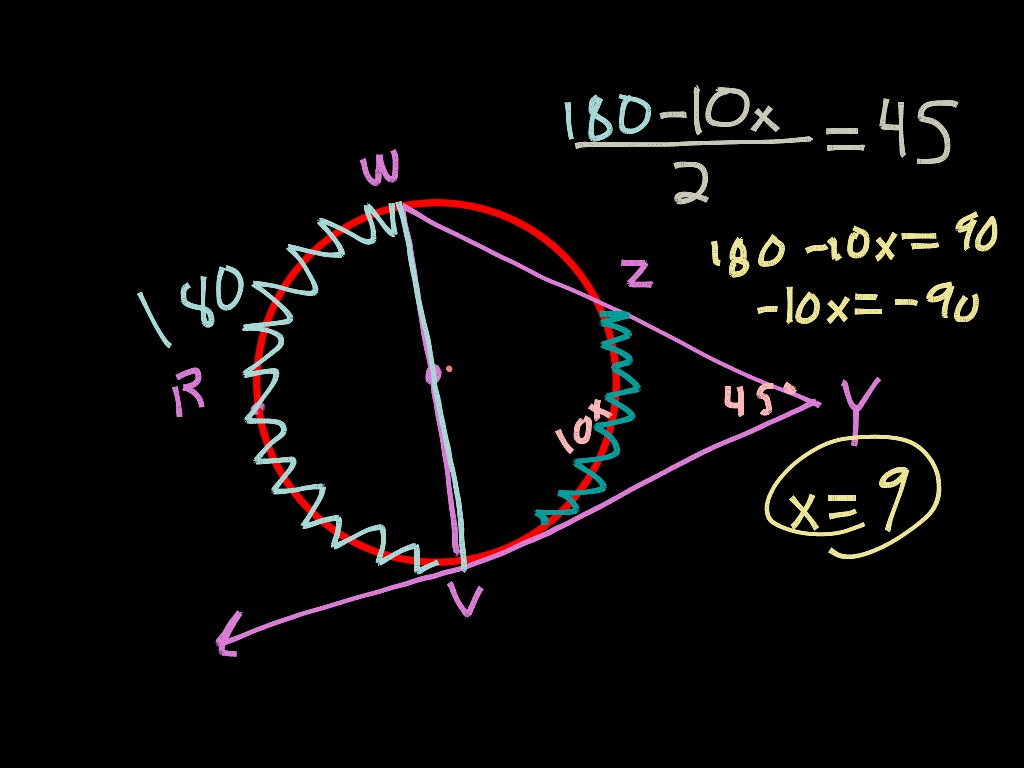 180-10x / 2 = 45
W
Z
180 -10x = 90
-10x = -90
180
R
45°
Y
10x
x = 9
V